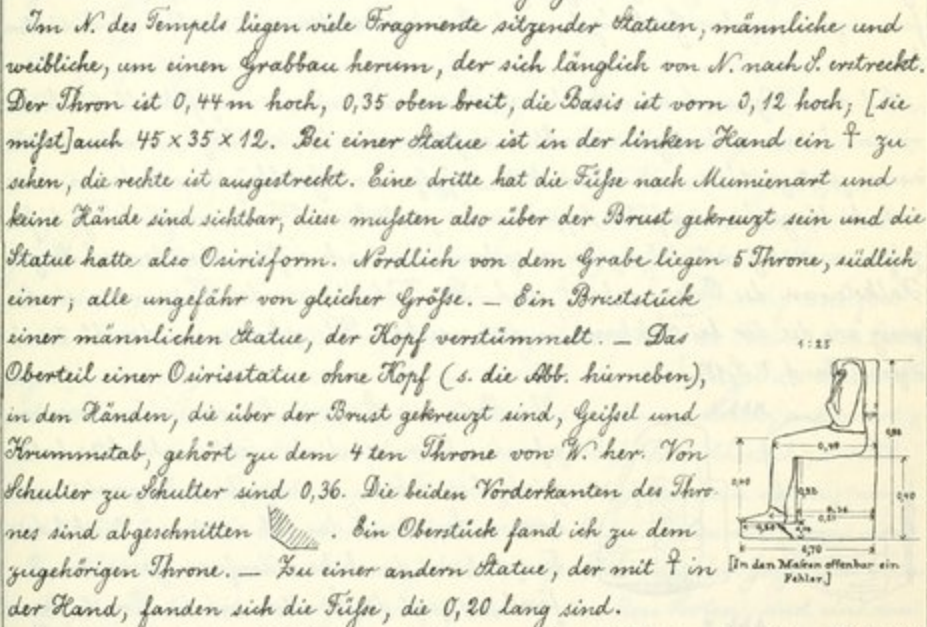 Im N. des Tempels liegen viele Fragmente sitzender Statuen, männliche und
weibliche, um einen Grabbau herum, der sich länglich von N. nach S. erstreckt.
Der Thron ist 0,44 m hoch, 0,35 oben breit, die Basis ist vorn 0,12 hoch; [sie
mißt] auch 45 x 35 x 12. Bei einer Statue ist in der linken Hand ein ☥ zu
sehen, die rechte ist ausgestreckt. Eine dritte hat die Füße nach Mumienart und
keine Hände sind sichtbar, diese mußten also über der Brust gekreuzt sein und die
Statue hatte also Osirisform. Nördlich von dem Grabe liegen 5 Throne, südlich
einer, alle ungefähr von gleicher Größe. — Ein Bruststück
einer männlichen Statue, der Kopf verstümmelt. — Das
Oberteil einer Osirisstatue ohne Kopf (s. die Abb. hierneben),
in den Händen, die über der Brust gekreuzt sind, Geißel und
Krummstab, gehört zu dem 4ten Throne von W. her. Von
Schulter zu Schulter sind 0,36. Die beiden Vorderkanten des Thro-
nes sind abgeschnitten . Ein Oberstück fand ich zu dem
zugehörigen Throne. — Zu einer andern Statue, der mit ☥ in
der Hand, fanden sich die Füße, die 0,20 lang sind.
1:25
0,40
0,40
0,70
[In den Maßen offenbar ein
Fehler.]